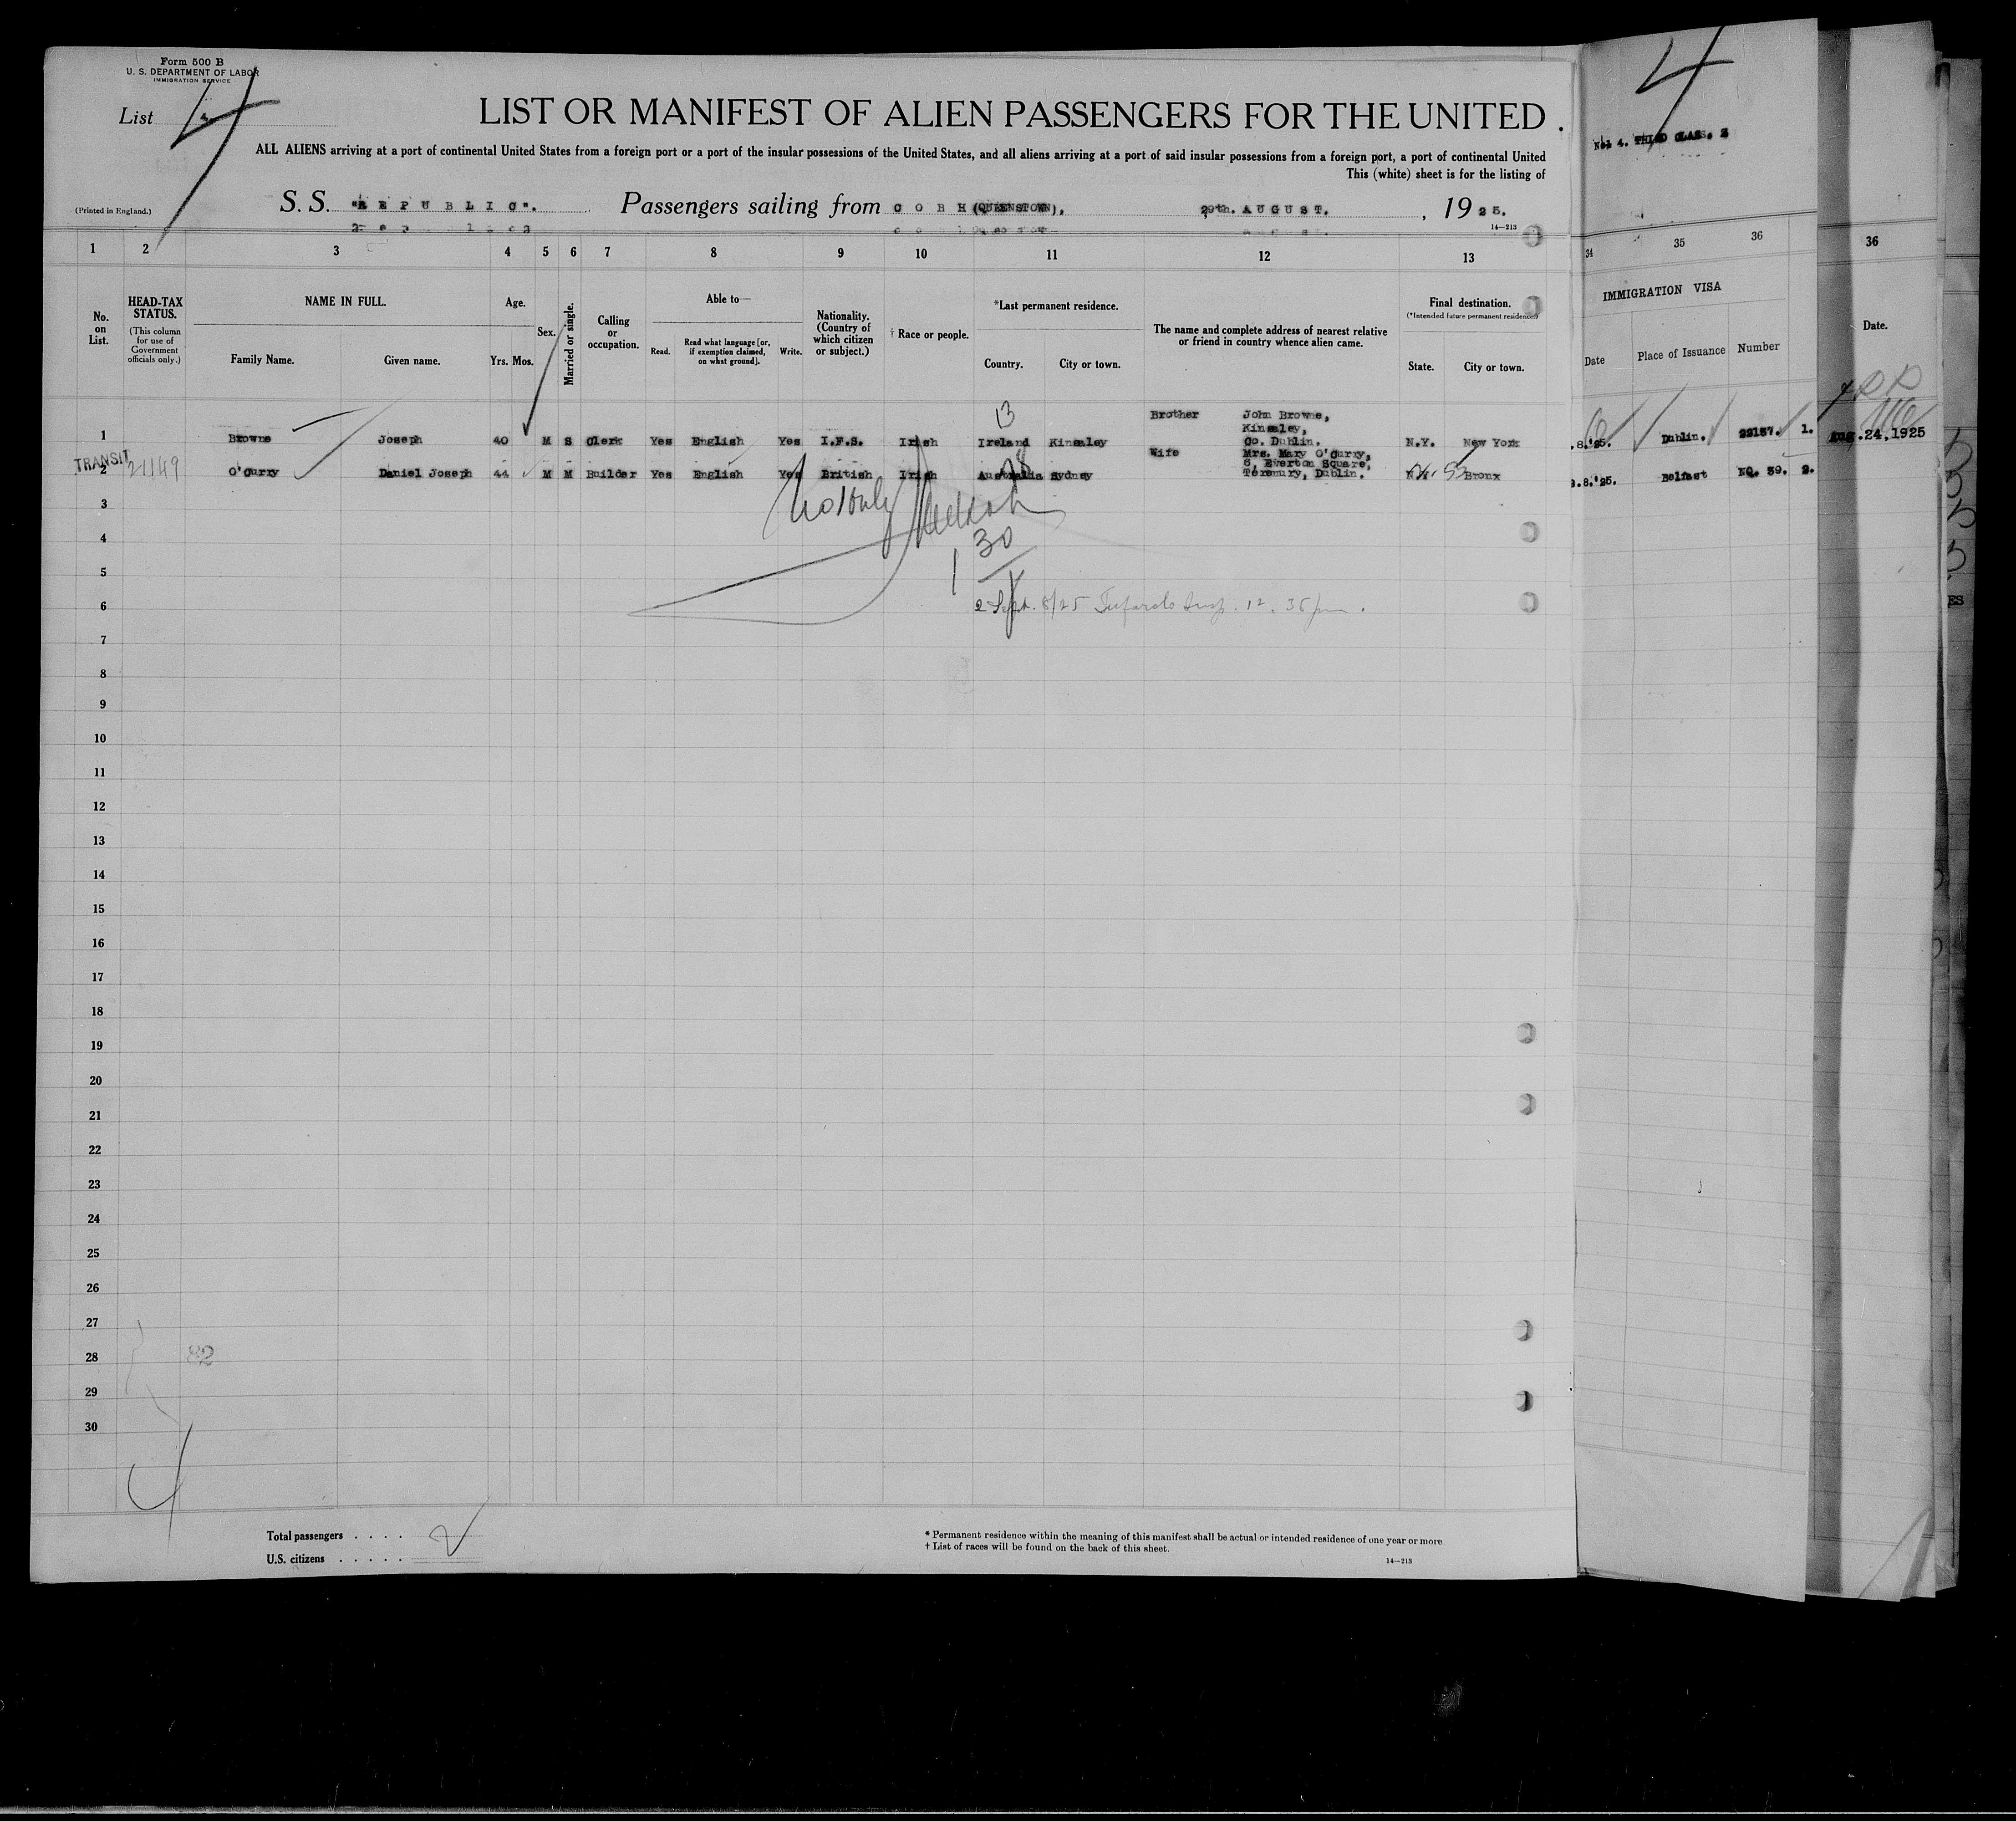 Form 500 B
U. S. DEPARTMENT OF LABOR
IMMIGRATION SERVICE
List 4
4
LIST OR MANIFEST OF ALIEN PASSENGERS FOR THE UNITED
ALL ALIENS arriving at a port of continental United States from a foreign port or a port of the insular possessions of the United States, and all aliens arriving at a port of said insular possessions from a foreign port, a port of continental United
This (white) sheet is for the listing of
(Printed in England.)
S. S. "REPUBLIC". Passengers sailing from COBH (QUEENSTOWN), 29th. AUGUST. , 19 25.
14—213
4
No: 4. THIRD CLASS.
1 2 3 4 5 6 7 8 9 10 11 12 13 34 35 36 36
No. on List.
HEAD-TAX STATUS.
(This column for use of Government officials only.)
NAME IN FULL.
Family Name. Given name.
Age.
Yrs. Mos.
Sex.
Married or single.
Calling or occupation.
Able to—
Read. Read what language [or, if exemption claimed, on what ground]. Write.
Nationality. (Country of which citizen or subject.)
† Race or people.
*Last permanent residence.
Country. City or town.
The name and complete address of nearest relative or friend in country whence alien came.
Final destination.
(*Intended future permanent residence)
State. City or town.
IMMIGRATION VISA
Date Place of Issuance Number
Date.
13
1 Browne Joseph 40 M S Clerk Yes English Yes I.F.S. Irish Ireland Kinsaley Brother John Browne, Kinsaley, Co. Dublin. N.Y. New York .8.'25. Dublin. 22187. 1. Aug.24,1925
TRANSIT
2 21149 O'Gurry Daniel Joseph 44 M M Builder Yes English Yes British Irish Australia Sydney Wife Mrs. Mary O'Gurry, 6, Everton Square, Terenury, Dublin. Bronx .8.'25. Belfast NQ. 39. 2.
3
4
30
5
6
2 Sept. 8/25 Insp. 12.35 pm.
7
8
9
10
11
12
13
14
15
16
17
18
19
20
21
22
23
24
25
26
27
28 82
29
30
Total passengers . . . . 2
U.S. citizens . . . . .
* Permanent residence within the meaning of this manifest shall be actual or intended residence of one year or more
† List of races will be found on the back of this sheet.
14—213